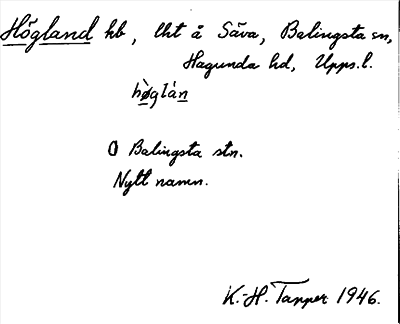 Högland hb, lht å Säva, Balingsta sn,
Hagunda hd, Upps.l.
hø̀glán
O Balingsta stn.
Nytt namn.
K.-H. Tanper 1946.